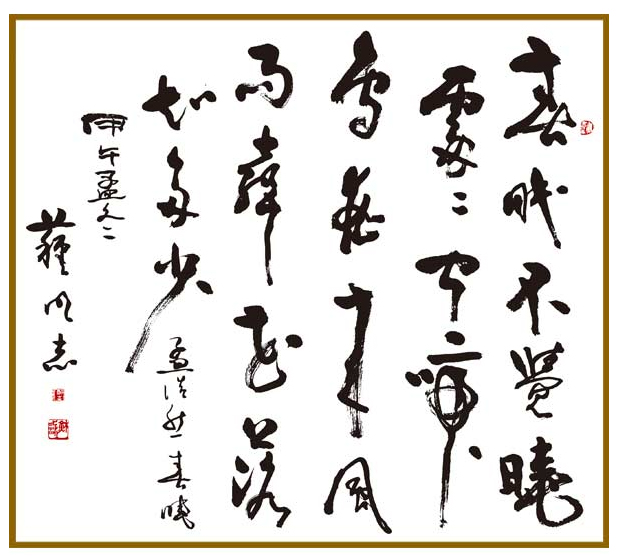 春眠不覺曉
處々聞啼
鳥夜來風
雨聲花落
知多少
孟浩然春曉
甲午孟冬